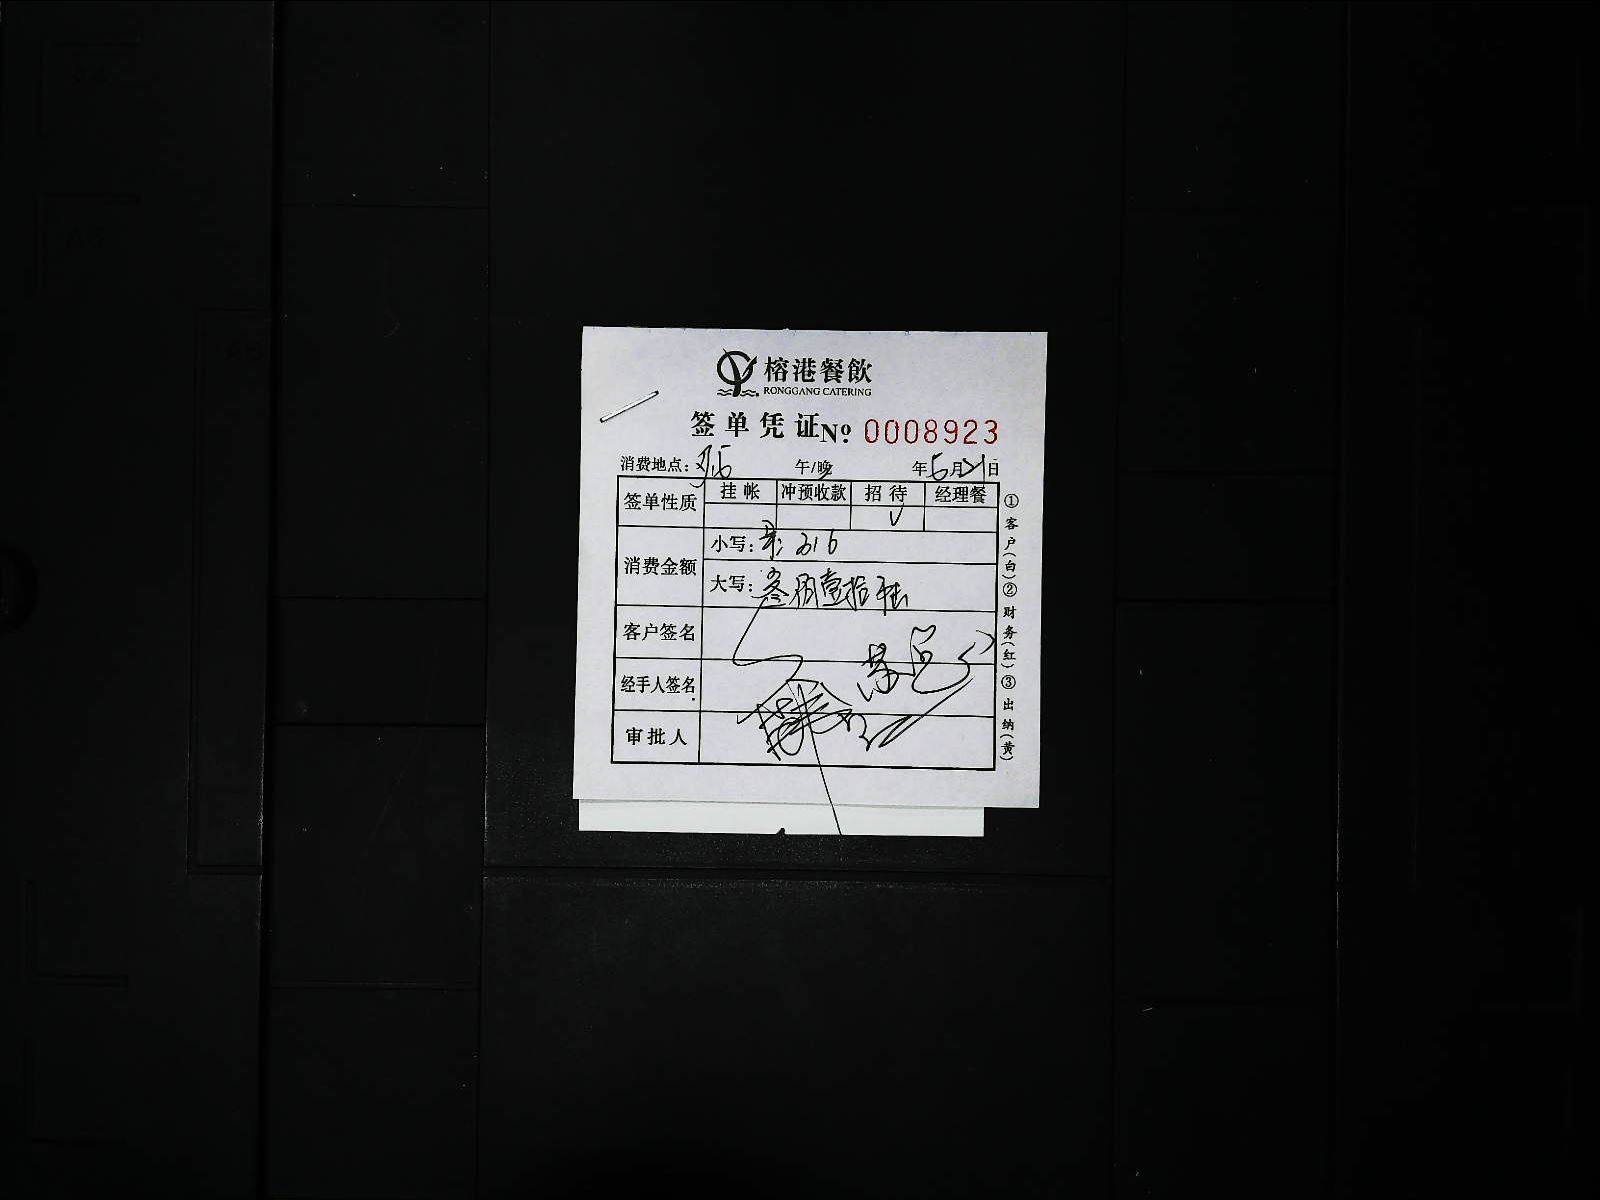 榕港餐飲
RONGGANG CATERING
签单凭证 Nº 0008923
消费地点： 午/晚 年5月21日
签单性质 挂帐 冲预收款 招待 经理餐
√
消费金额 小写： 316
大写：叁佰壹拾陆
客户签名
经手人签名
审批人
①客户(白)②财务(红)③出纳(黄)